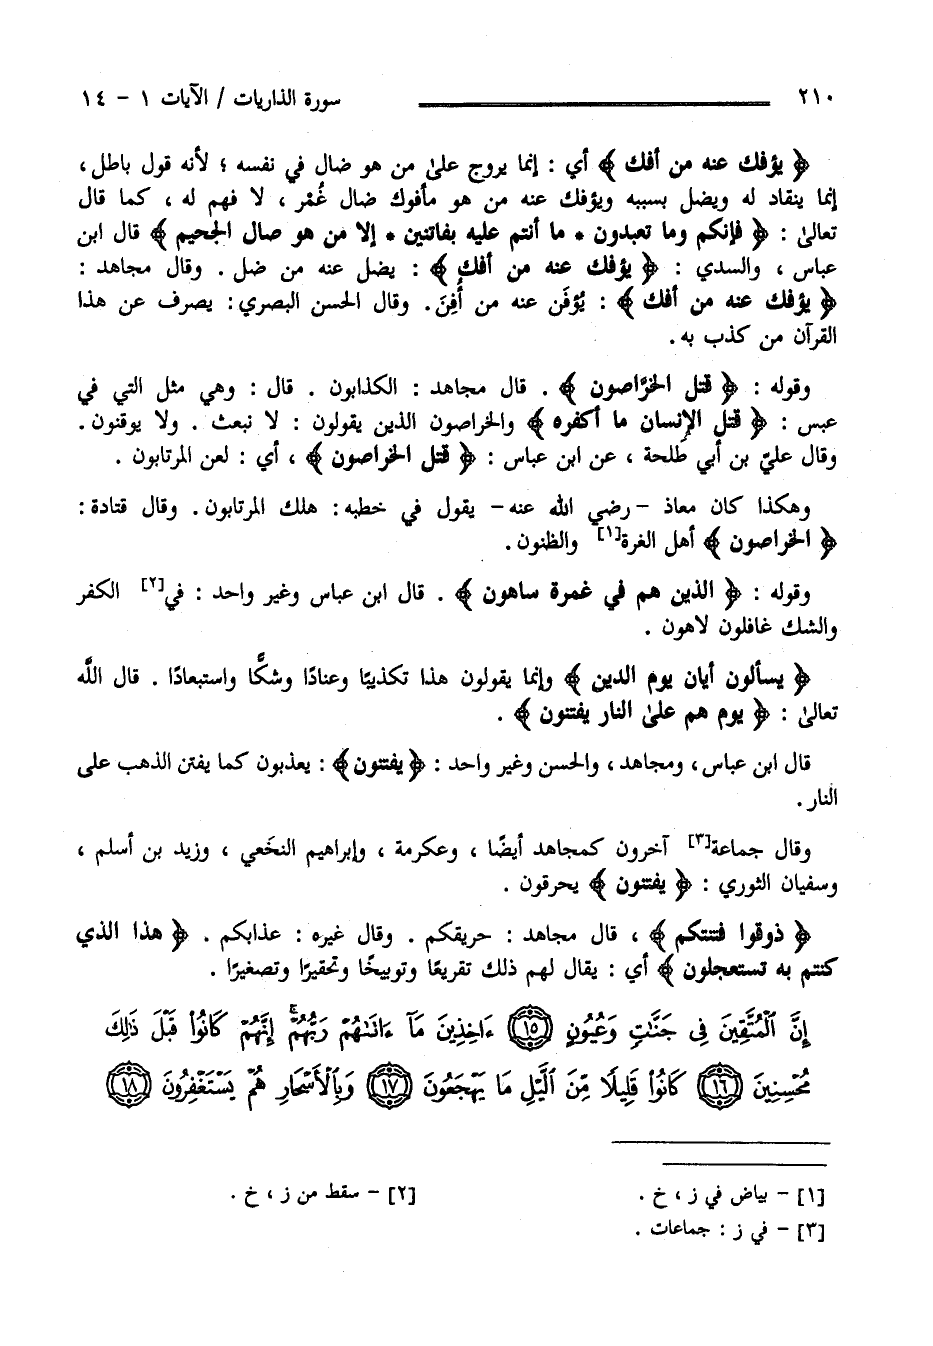 ٢١٠ سورة الذاريات / الآيات ١ - ١٤
﴿ يؤفك عنه من أفك ﴾ أي : إنما يروج علىٰ من هو ضال في نفسه ؛ لأنه قول باطل ،
إنما ينقاد له ويضل بسببه ويؤفك عنه من هو مأفوك ضال غُمْر ، لا فهم له ، كما قال
تعالىٰ : ﴿ فإنكم وما تعبدون * ما أنتم عليه بفاتنين * إلا من هو صال الجحيم ﴾ قال ابن
عباس ، والسدي : ﴿ يؤفك عنه من أفك ﴾ : يضل عنه من ضل . وقال مجاهد :
﴿ يؤفك عنه من أفك ﴾ : يُؤفَن عنه من أُفِنَ. وقال الحسن البصري: يصرف عن هذا
القرآن من كذب به .
وقوله : ﴿ قتل الخرَّاصون ﴾ . قال مجاهد : الكذابون . قال : وهي مثل التي في
عبس : ﴿ قتل الإنسان ما أكفره ﴾ والخراصون الذين يقولون : لا نبعث . ولا يوقنون .
وقال عليّ بن أبي طلحة ، عن ابن عباس : ﴿ قتل الخراصون ﴾ ، أي : لعن المرتابون .
وهكذا كان معاذ -رضي الله عنه- يقول في خطبه: هلك المرتابون. وقال قتادة:
﴿ الخراصون ﴾ أهل الغرة[١] والظنون.
وقوله : ﴿ الذين هم في غمرة ساهون ﴾ . قال ابن عباس وغير واحد : في[٢] الكفر
والشك غافلون لاهون .
﴿ يسألون أيان يوم الدين ﴾ وإنما يقولون هذا تكذيبًا وعنادًا وشكًّا واستبعادًا . قال اللَّه
تعالىٰ : ﴿ يوم هم علىٰ النار يفتنون ﴾ .
قال ابن عباس، ومجاهد، والحسن وغير واحد : ﴿يفتنون﴾ : يعذبون كما يفتن الذهب على
النار.
وقال جماعة[٣] آخرون كمجاهد أيضًا ، وعكرمة ، وإبراهيم النخَعي ، وزيد بن أسلم ،
وسفيان الثوري : ﴿ يفتنون ﴾ يحرقون .
﴿ ذوقوا فتنتكم ﴾ ، قال مجاهد : حريقكم . وقال غيره : عذابكم . ﴿ هذا الذي
كنتم به تستعجلون ﴾ أي : يقال لهم ذلك تقريعًا وتوبيخًا وتحقيرًا وتصغيرًا .
إِنَّ ٱلْمُتَّقِينَ فِى جَنَّٰتٍ وَعُيُونٍ ١٥ ءَاخِذِينَ مَآ ءَاتَىٰهُمْ رَبُّهُمْ ۚ إِنَّهُمْ كَانُوا۟ قَبْلَ ذَٰلِكَ
مُحْسِنِينَ ١٦ كَانُوا۟ قَلِيلًا مِّنَ ٱلَّيْلِ مَا يَهْجَعُونَ ١٧ وَبِٱلْأَسْحَارِ هُمْ يَسْتَغْفِرُونَ ١٨
[١] - بياض في ز ، خ . [٢] - سقط من ز ، خ .
[٣] - في ز : جماعات .